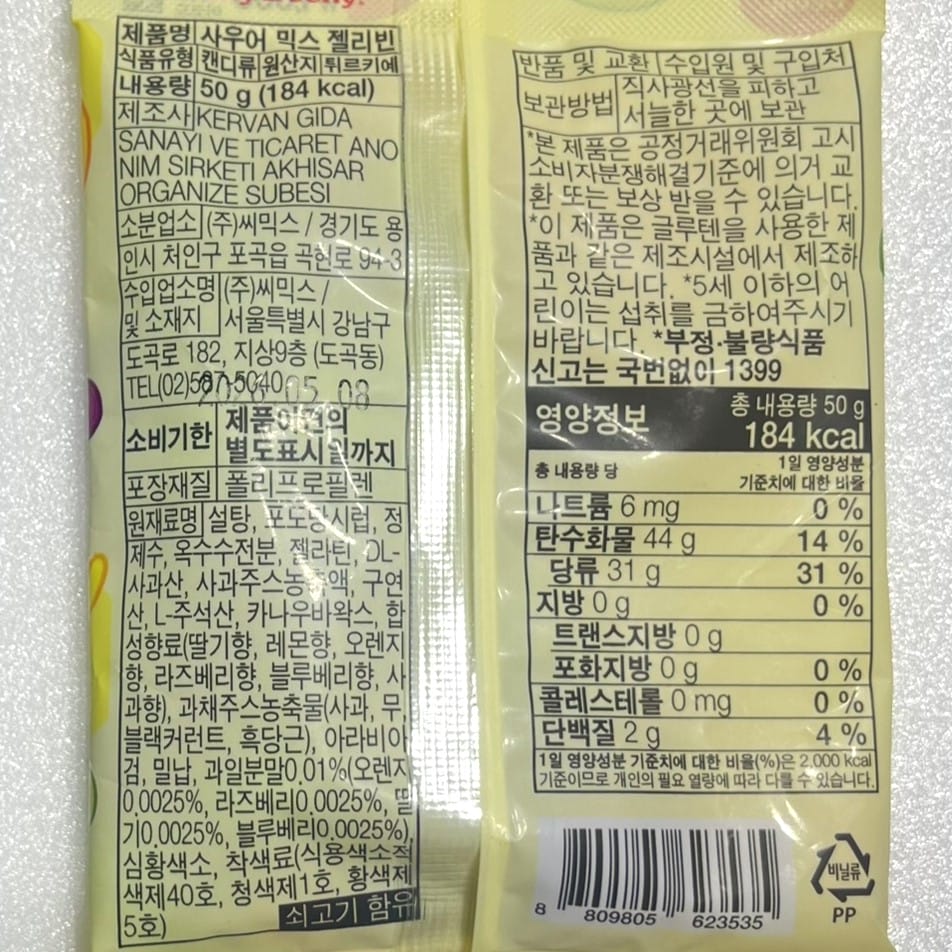 제품명 사우어 믹스 젤리빈
식품유형 캔디류 원산지 튀르키예
내용량 50 g (184 kcal)
제조사 KERVAN GIDA
SANAYI VE TICARET ANO
NIM SIRKETI AKHISAR
ORGANIZE SUBESI
소분업소 (주)씨믹스 / 경기도 용
인시 처인구 포곡읍 곡현로 94-3
수입업소명 (주)씨믹스 /
및 소재지 서울특별시 강남구
도곡로 182, 지상9층 (도곡동)
TEL(02)587-5040
2026 05 08
소비기한 제품이면의
별도표시일까지
포장재질 폴리프로필렌
원재료명 설탕, 포도당시럽, 정
제수, 옥수수전분, 젤라틴, DL-
사과산, 사과주스농축액, 구연
산, L-주석산, 카나우바왁스, 합
성향료(딸기향, 레몬향, 오렌지
향, 라즈베리향, 블루베리향, 사
과향), 과채주스농축물(사과, 무,
블랙커런트, 흑당근), 아라비아
검, 밀납, 과일분말0.01%(오렌지
0.0025%, 라즈베리0.0025%, 딸
기0.0025%, 블루베리0.0025%),
심황색소, 착색료(식용색소적
색제40호, 청색제1호, 황색제
5호)
쇠고기 함유
반품 및 교환 수입원 및 구입처
보관방법 직사광선을 피하고
서늘한 곳에 보관
*본 제품은 공정거래위원회 고시
소비자분쟁해결기준에 의거 교
환 또는 보상 받을 수 있습니다.
*이 제품은 글루텐을 사용한 제
품과 같은 제조시설에서 제조하
고 있습니다. *5세 이하의 어
린이는 섭취를 금하여주시기
바랍니다. *부정·불량식품
신고는 국번없이 1399
영양정보 총 내용량 50 g
184 kcal
총 내용량 당 1일 영양성분
기준치에 대한 비율
나트륨 6 mg 0 %
탄수화물 44 g 14 %
당류 31 g 31 %
지방 0 g 0 %
트랜스지방 0 g
포화지방 0 g 0 %
콜레스테롤 0 mg 0 %
단백질 2 g 4 %
1일 영양성분 기준치에 대한 비율(%)은 2,000 kcal
기준이므로 개인의 필요 열량에 따라 다를 수 있습니다.
8 809805 623535
비닐류
PP